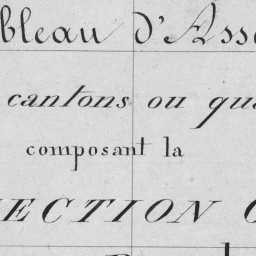 bleau d'Ass
cantons ou qua
composant la
ECTION